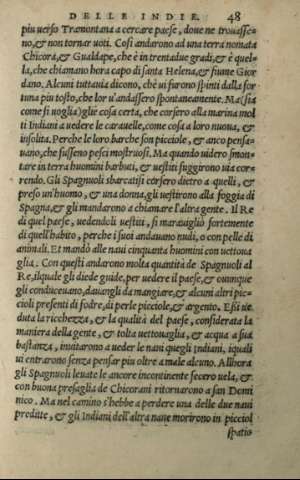 DELLE INDIE. 48
piu uerso Tramontana a cercare paese, doue ne trouasse-
no, & non tornar uoti. Cosi andarono ad una terra nomata
Chicora, & Gualdape, che è in trentadue gradi, & è quel-
la, che chiamano hora capo di santa Helena, & fiume Gior
dano. Alcuni tuttauia dicono, che ui furono spinti dalla for
tuna piu tosto, che lor u'andassero spontaneamente. Ma (sia
come si uoglia) gliè cosa certa, che corsero alla marina mol
ti Indiani a uedere le carauelle, come cosa a loro nuoua, &
insolita. Perche le loro barche son picciole, & anco pensa-
uano, che fussero pesci mostruosi. Ma quando uidero smon-
tare in terra huomini barbuti, & uestiti fuggirono uia cor-
rendo. Gli Spagnuoli sbarcatisi corsero dietro a quelli, &
preso un'huomo, & una donna, gli uestirono alla foggia di
Spagna, & gli mandarono a chiamare l'altra gente. Il Re
di quel paese, uedendoli uestiti, si marauigliò fortemente
di quell'habito, perche i suoi andauano nudi, o con pelle di
animali. Et mandò alle naui cinquanta huomini con uettoua
glia. Con questi andarono molta quantità de Spagnuoli al
Re, ilquale gli diede guide, per uedere il paese, & ounque
gli conduceuano, dauangli da mangiare, & alcuni altri pic-
cioli presenti di fodre, di perle picciole, & argento. Essi ue
duta la ricchezza, & la qualità del paese, considerata la
maniera della gente, & tolta uettouaglia, & acqua a sua
bastanza, inuitarono a ueder le naui quegli Indiani, iquali
ui entrarono senza pensar piu oltre a male alcuno. Allhora
gli Spagnuoli leuate le ancore incontinente fecero uela, &
con buona presaglia de Chicorani ritornarono a san Domi
nico. Ma nel camino s'hebbe a perdere una delle due naui
preditte, & gli Indiani dell'altra naue morirono in picciol
spatio